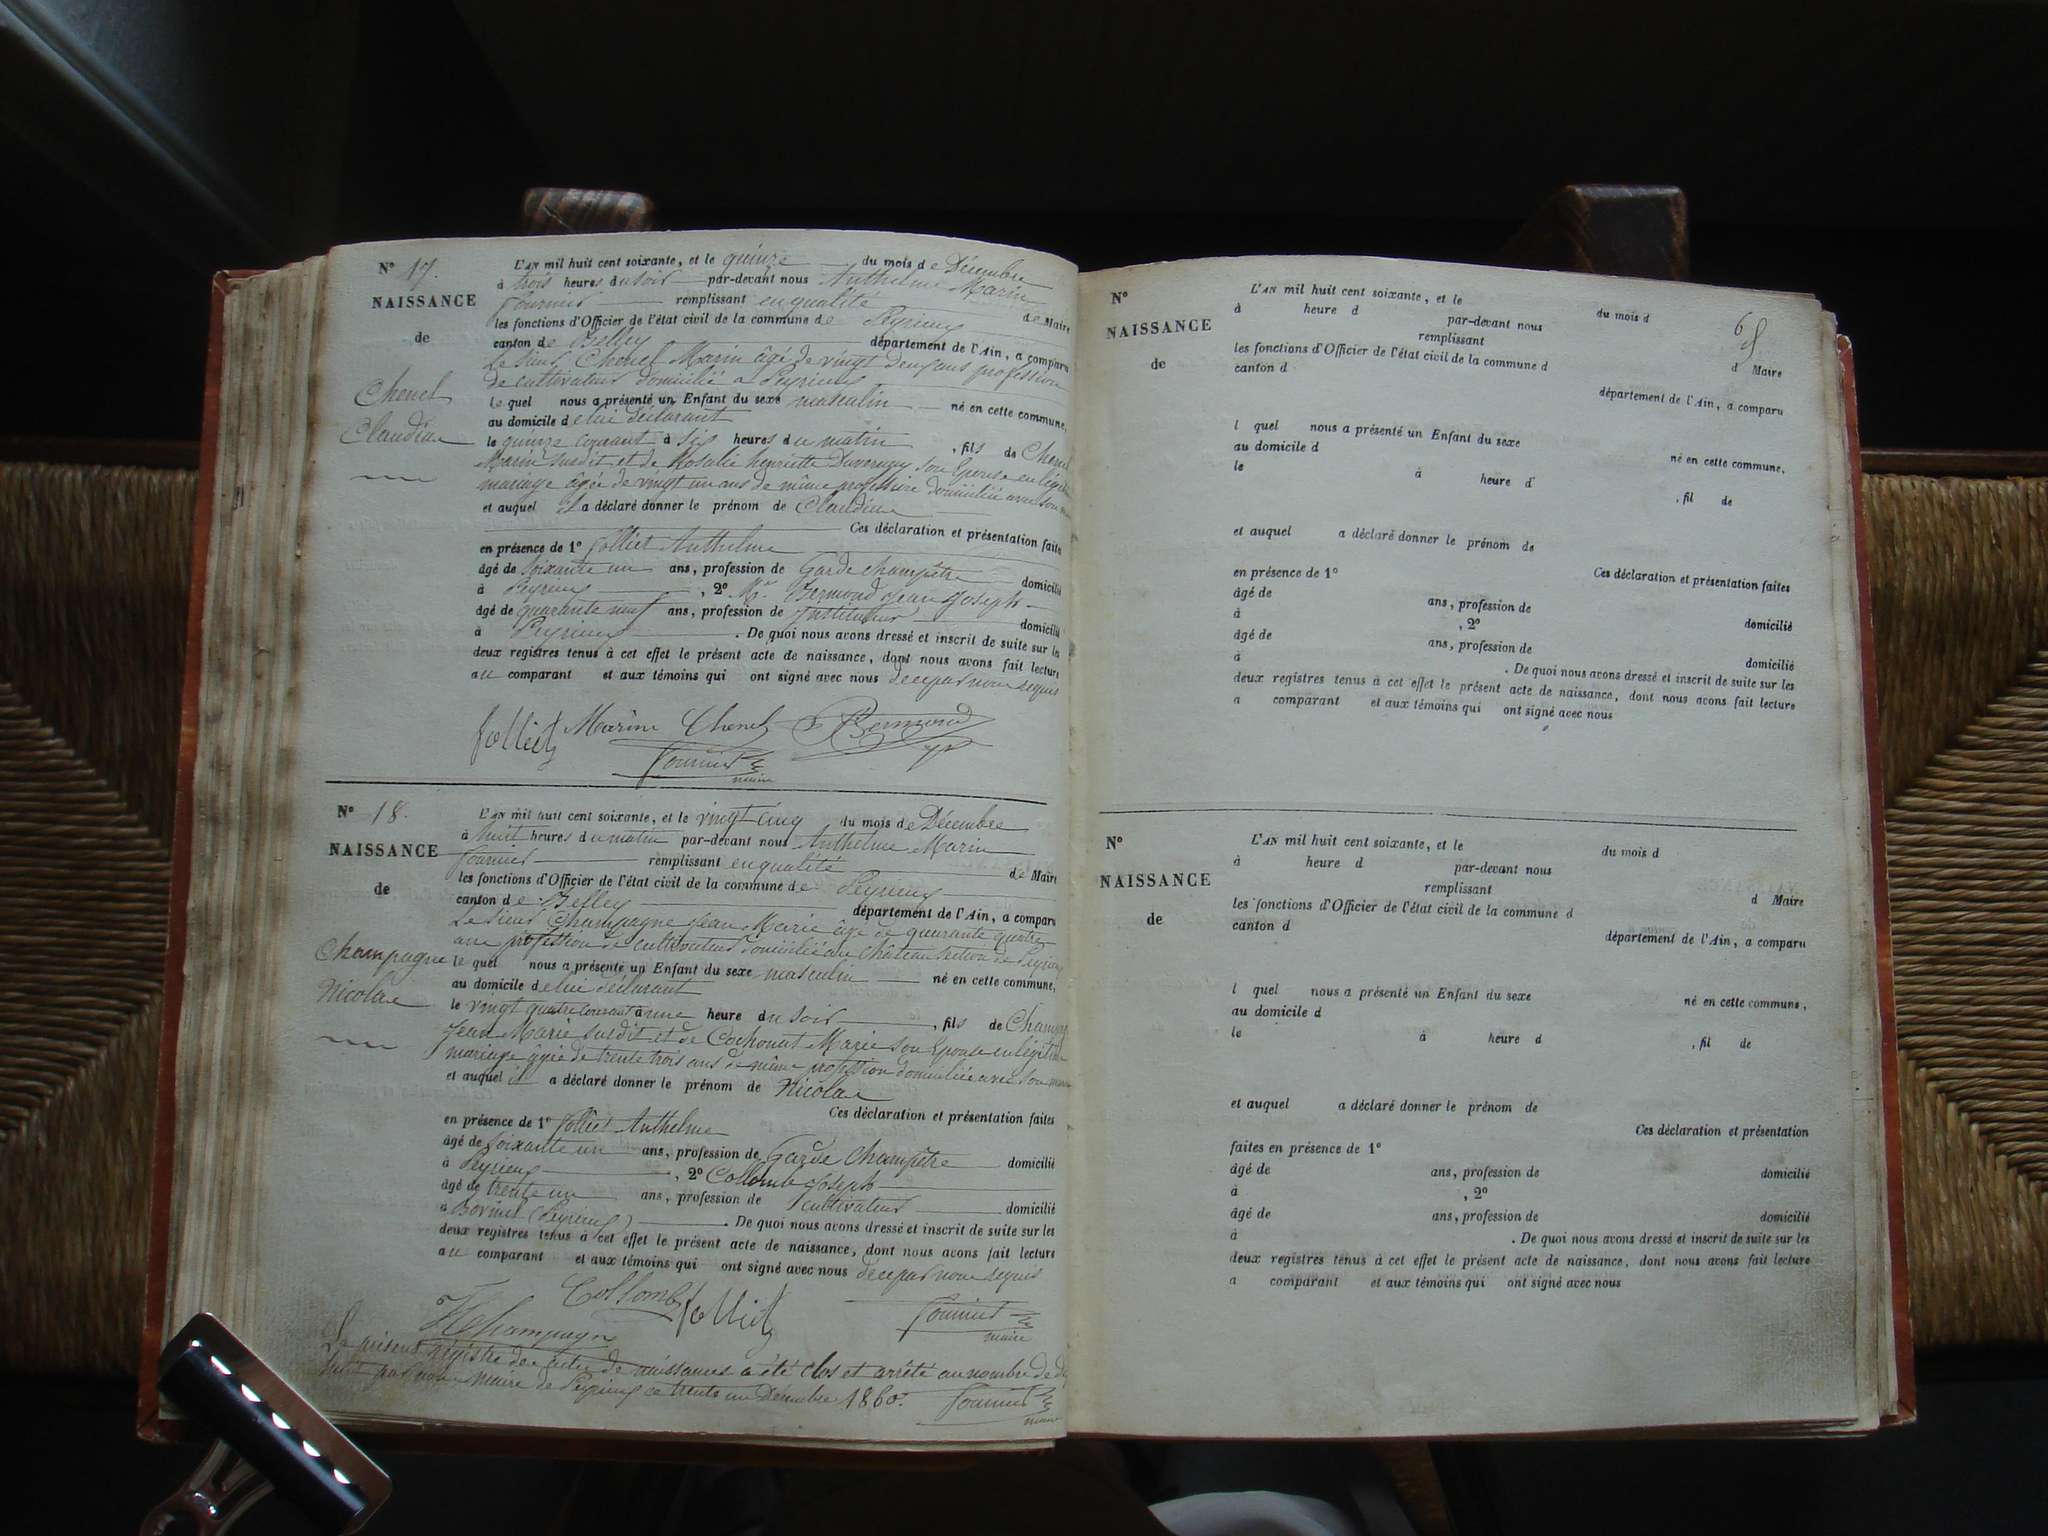 N° 17.
NAISSANCE
de
Chenel
Claudius
L'AN mil huit cent soixante, et le quinze du mois de Décembre
à trois heures du soir par-devant nous Anthelme Marin
Fournier remplissant en qualité de Maire
les fonctions d'Officier de l'état civil de la commune de Peyrieux
canton de Belley département de l'Ain, a comparu
Le sieur Chenel Marin âgé de vingt deux ans profession
de cultivateur domicilié a Peyrieux
lequel nous a présenté un Enfant du sexe masculin né en cette commune,
au domicile de lui déclarant
le quinze courant à six heures du matin, fils de Chenel
Marin susdit et de Rosalie henriette son Epouse en légitime
mariage âgée de vingt un ans de même profession domiciliée avec son
et auquel il a déclaré donner le prénom de
Ces déclaration et présentation faites
en présence de 1° Jolliet Anthelme
âgé de soixante un ans, profession de Garde champêtre domicilié
à Peyrieux, 2° Mr. Bermond Jean Joseph
âgé de quarante neuf ans, profession de Instituteur domicilié
à Peyrieux. De quoi nous avons dressé et inscrit de suite sur les
deux registres tenus à cet effet le présent acte de naissance, dont nous avons fait lecture
au comparant et aux témoins qui ont signé avec nous de ce par nous requis
Jolliet Marin Chenel Bermond
Fournier
maire
N° 18.
NAISSANCE
de
Champagne
Nicolas
L'AN mil huit cent soixante, et le vingt cinq du mois de Décembre
à huit heures du matin par-devant nous Anthelme Marin
Fournier remplissant en qualité de Maire
les fonctions d'Officier de l'état civil de la commune de Peyrieux
canton de Belley département de l'Ain, a comparu
Le sieur Champagne Jean Marie âgé de quarante quatre
ans profession de cultivateur domicilié au Château section de Peyrieux
lequel nous a présenté un Enfant du sexe masculin né en cette commune,
au domicile de lui déclarant
le vingt quatre courant à une heure du soir, fils de Champagne
Jean Marie susdit et de Cochonat Marie son Epouse en légitime
mariage âgée de trente trois ans de même profession domiciliée avec son mari
et auquel il a déclaré donner le prénom de Nicolas
Ces déclaration et présentation faites
en présence de 1° Jolliet Anthelme
âgé de soixante un ans, profession de Garde Champêtre domicilié
à Peyrieux, 2° Collomb Joseph
âgé de trente un ans, profession de cultivateur domicilié
à (Peyrieux). De quoi nous avons dressé et inscrit de suite sur les
deux registres tenus à cet effet le présent acte de naissance, dont nous avons fait lecture
au comparant et aux témoins qui ont signé avec nous de ce par nous requis
Collomb Jolliet Fournier
maire
Champagne
Le présent registre des actes de naissances a été clos et arrêté au nombre de dix
huit par nous Maire de Peyrieux ce trente un Décembre 1860. Fournier
maire
65
N°
NAISSANCE
de
L'AN mil huit cent soixante, et le du mois d
à heure d par-devant nous
remplissant d Maire
les fonctions d'Officier de l'état civil de la commune d
canton d département de l'Ain, a comparu
l quel nous a présenté un Enfant du sexe né en cette commune,
au domicile d
le à heure d , fil de
et auquel a déclaré donner le prénom de
Ces déclaration et présentation faites
en présence de 1°
âgé de ans, profession de domicilié
à , 2°
âgé de ans, profession de domicilié
à . De quoi nous avons dressé et inscrit de suite sur les
deux registres tenus à cet effet le présent acte de naissance, dont nous avons fait lecture
a comparant et aux témoins qui ont signé avec nous
N°
NAISSANCE
de
L'AN mil huit cent soixante, et le du mois d
à heure d par-devant nous
remplissant d Maire
les fonctions d'Officier de l'état civil de la commune d
canton d département de l'Ain, a comparu
l quel nous a présenté un Enfant du sexe né en cette commune,
au domicile d
le à heure d , fil de
et auquel a déclaré donner le prénom de
Ces déclaration et présentation
faites en présence de 1°
âgé de ans, profession de domicilié
à , 2°
âgé de ans, profession de domicilié
à . De quoi nous avons dressé et inscrit de suite sur les
deux registres tenus à cet effet le présent acte de naissance, dont nous avons fait lecture
a comparant et aux témoins qui ont signé avec nous